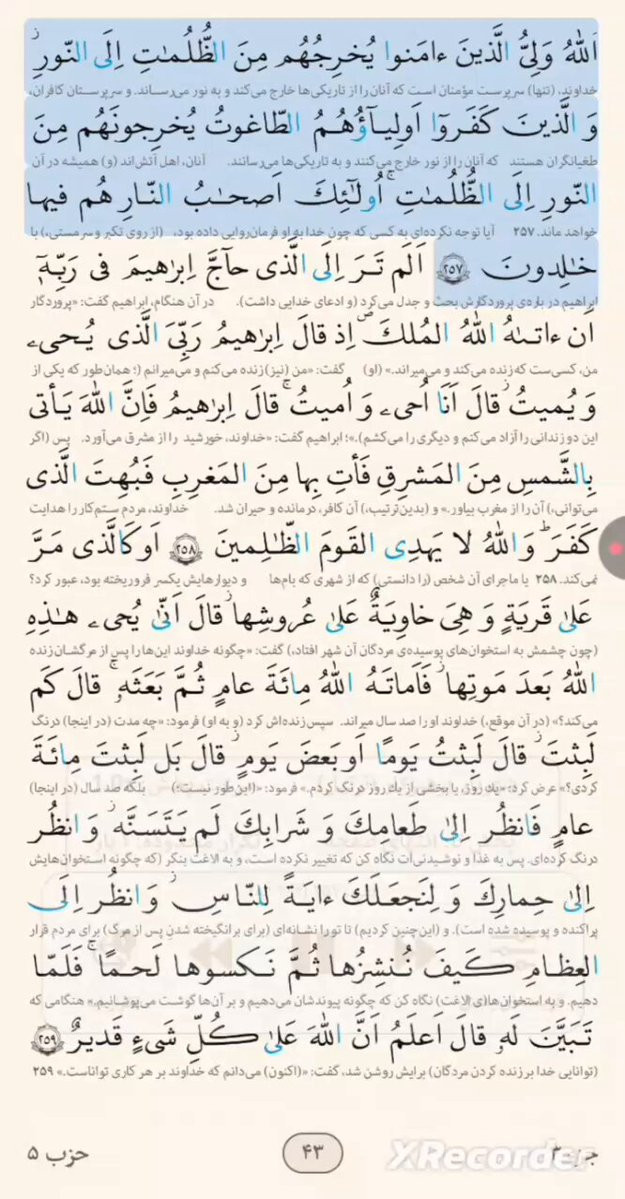 اَللّٰهُ وَلِیُّ الَّذینَ ءامَنوا یُخرِجُهُم مِنَ الظُّلُمٰتِ اِلَی النّورِ ۖ
خداوند، (تنها) سرپرست مؤمنان است که آنان را از تاریکی‌ها خارج می‌کند و به نور می‌رساند. و سرپرستان کافران،
وَ الَّذینَ کَفَروا اَولِیاؤُهُمُ الطّاغوتُ یُخرِجونَهُم مِنَ
طغیانگران هستند که آنان را از نور خارج می‌کنند و به تاریکی‌ها می‌رسانند. آنان، اهل آتش‌اند (و) همیشه در آن
النّورِ اِلَی الظُّلُمٰتِ ۗ اُولٰئِکَ اَصحٰبُ النّارِ هُم فیها
خواهند ماند. ۲۵۷ آیا توجه نکرده‌ای به کسی که چون خدا به او فرمان‌روایی داده بود، (از روی تکبر و سرمستی،) با
خٰلِدونَ ﴿۲۵۷﴾ اَلَم تَرَ اِلَی الَّذی حاجَّ اِبرٰهیمَ فی رَبِّهٖ
ابراهیم در باره‌ی پروردگارش بحث و جدل می‌کرد (و ادعای خدایی داشت). در آن هنگام، ابراهیم گفت: «پروردگار
اَن ءاتٰىهُ اللّٰهُ المُلکَ اِذ قالَ اِبرٰهیمُ رَبِّیَ الَّذی یُحیۦ
من، کسی‌ست که زنده می‌کند و می‌میراند.» (او) گفت: «من (نیز) زنده می‌کنم و می‌میرانم (؛ همان‌طور که یکی از
وَ یُمیتُ قالَ اَنَا اُحیۦ وَ اُمیتُ ۖ قالَ اِبرٰهیمُ فَاِنَّ اللّٰهَ یَأتی
این دو زندانی را آزاد می‌کنم و دیگری را می‌کشم).»؛ ابراهیم گفت: «خداوند، خورشید را از مشرق می‌آورد. پس (اگر
بِالشَّمسِ مِنَ المَشرِقِ فَأتِ بِها مِنَ المَغرِبِ فَبُهِتَ الَّذی
می‌توانی،) آن را از مغرب بیاور.» و (بدین‌ترتیب،) آن کافر، درمانده و حیران شد. خداوند، مردم ستم‌کار را هدایت
کَفَرَ ۗ وَ اللّٰهُ لا یَهدِی القَومَ الظّٰلِمینَ ﴿۲۵۸﴾ اَو کَالَّذی مَرَّ
نمی‌کند. ۲۵۸ یا ماجرای آن شخص (را دانستی) که از شهری که بام‌ها و دیوارهایش یکسر فروریخته بود، عبور کرد؟
عَلیٰ قَریَةٍ وَ هِیَ خاوِیَةٌ عَلیٰ عُروشِها قالَ اَنّیٰ یُحیۦ هٰذِهِ
(چون چشمش به استخوان‌های پوسیده‌ی مردگان آن شهر افتاد،) گفت: «چگونه خداوند این‌ها را پس از مرگشان زنده
اللّٰهُ بَعدَ مَوتِها فَاَماتَهُ اللّٰهُ مِائَةَ عامٍ ثُمَّ بَعَثَهٗ ۖ قالَ کَم
می‌کند؟» (در آن موقع،) خداوند او را صد سال میراند. سپس زنده‌اش کرد (و به او) فرمود: «چه مدت (در اینجا) درنگ
لَبِثتَ قالَ لَبِثتُ یَومًا اَو بَعضَ یَومٍ قالَ بَل لَبِثتَ مِائَةَ
کردی؟» عرض کرد: «یک روز، یا بخشی از یک روز درنگ کردم.» فرمود: «(این‌طور نیست؛) بلکه صد سال (در اینجا)
عامٍ فَانظُر اِلیٰ طَعامِکَ وَ شَرابِکَ لَم یَتَسَنَّه وَ انظُر
درنگ کرده‌ای. پس به غذا و نوشیدنی‌ات نگاه کن که تغییر نکرده است، و به الاغت بنگر (که چگونه استخوان‌هایش
اِلیٰ حِمارِکَ وَ لِنَجعَلَکَ ءایَةً لِلنّاسِ وَ انظُر اِلَی
پراکنده و پوسیده شده است). و (این‌چنین کردیم) تا تو را نشانه‌ای (برای برانگیخته شدن پس از مرگ) برای مردم قرار
العِظامِ کَیفَ نُنشِزُها ثُمَّ نَکسوها لَحمًا ۚ فَلَمّا
دهیم. و به استخوان‌ها(ی الاغت) نگاه کن که چگونه پیوندشان می‌دهیم و بر آن‌ها گوشت می‌پوشانیم.» هنگامی که
تَبَیَّنَ لَهٗ قالَ اَعلَمُ اَنَّ اللّٰهَ عَلیٰ کُلِّ شَیءٍ قَدیرٌ ﴿۲۵۹﴾
(توانایی خدا بر زنده کردن مردگان) برایش روشن شد، گفت: «(اکنون) می‌دانم که خداوند بر هر کاری تواناست.» ۲۵۹
جزء ۳ ۴۳ حزب ۵
XRecorder